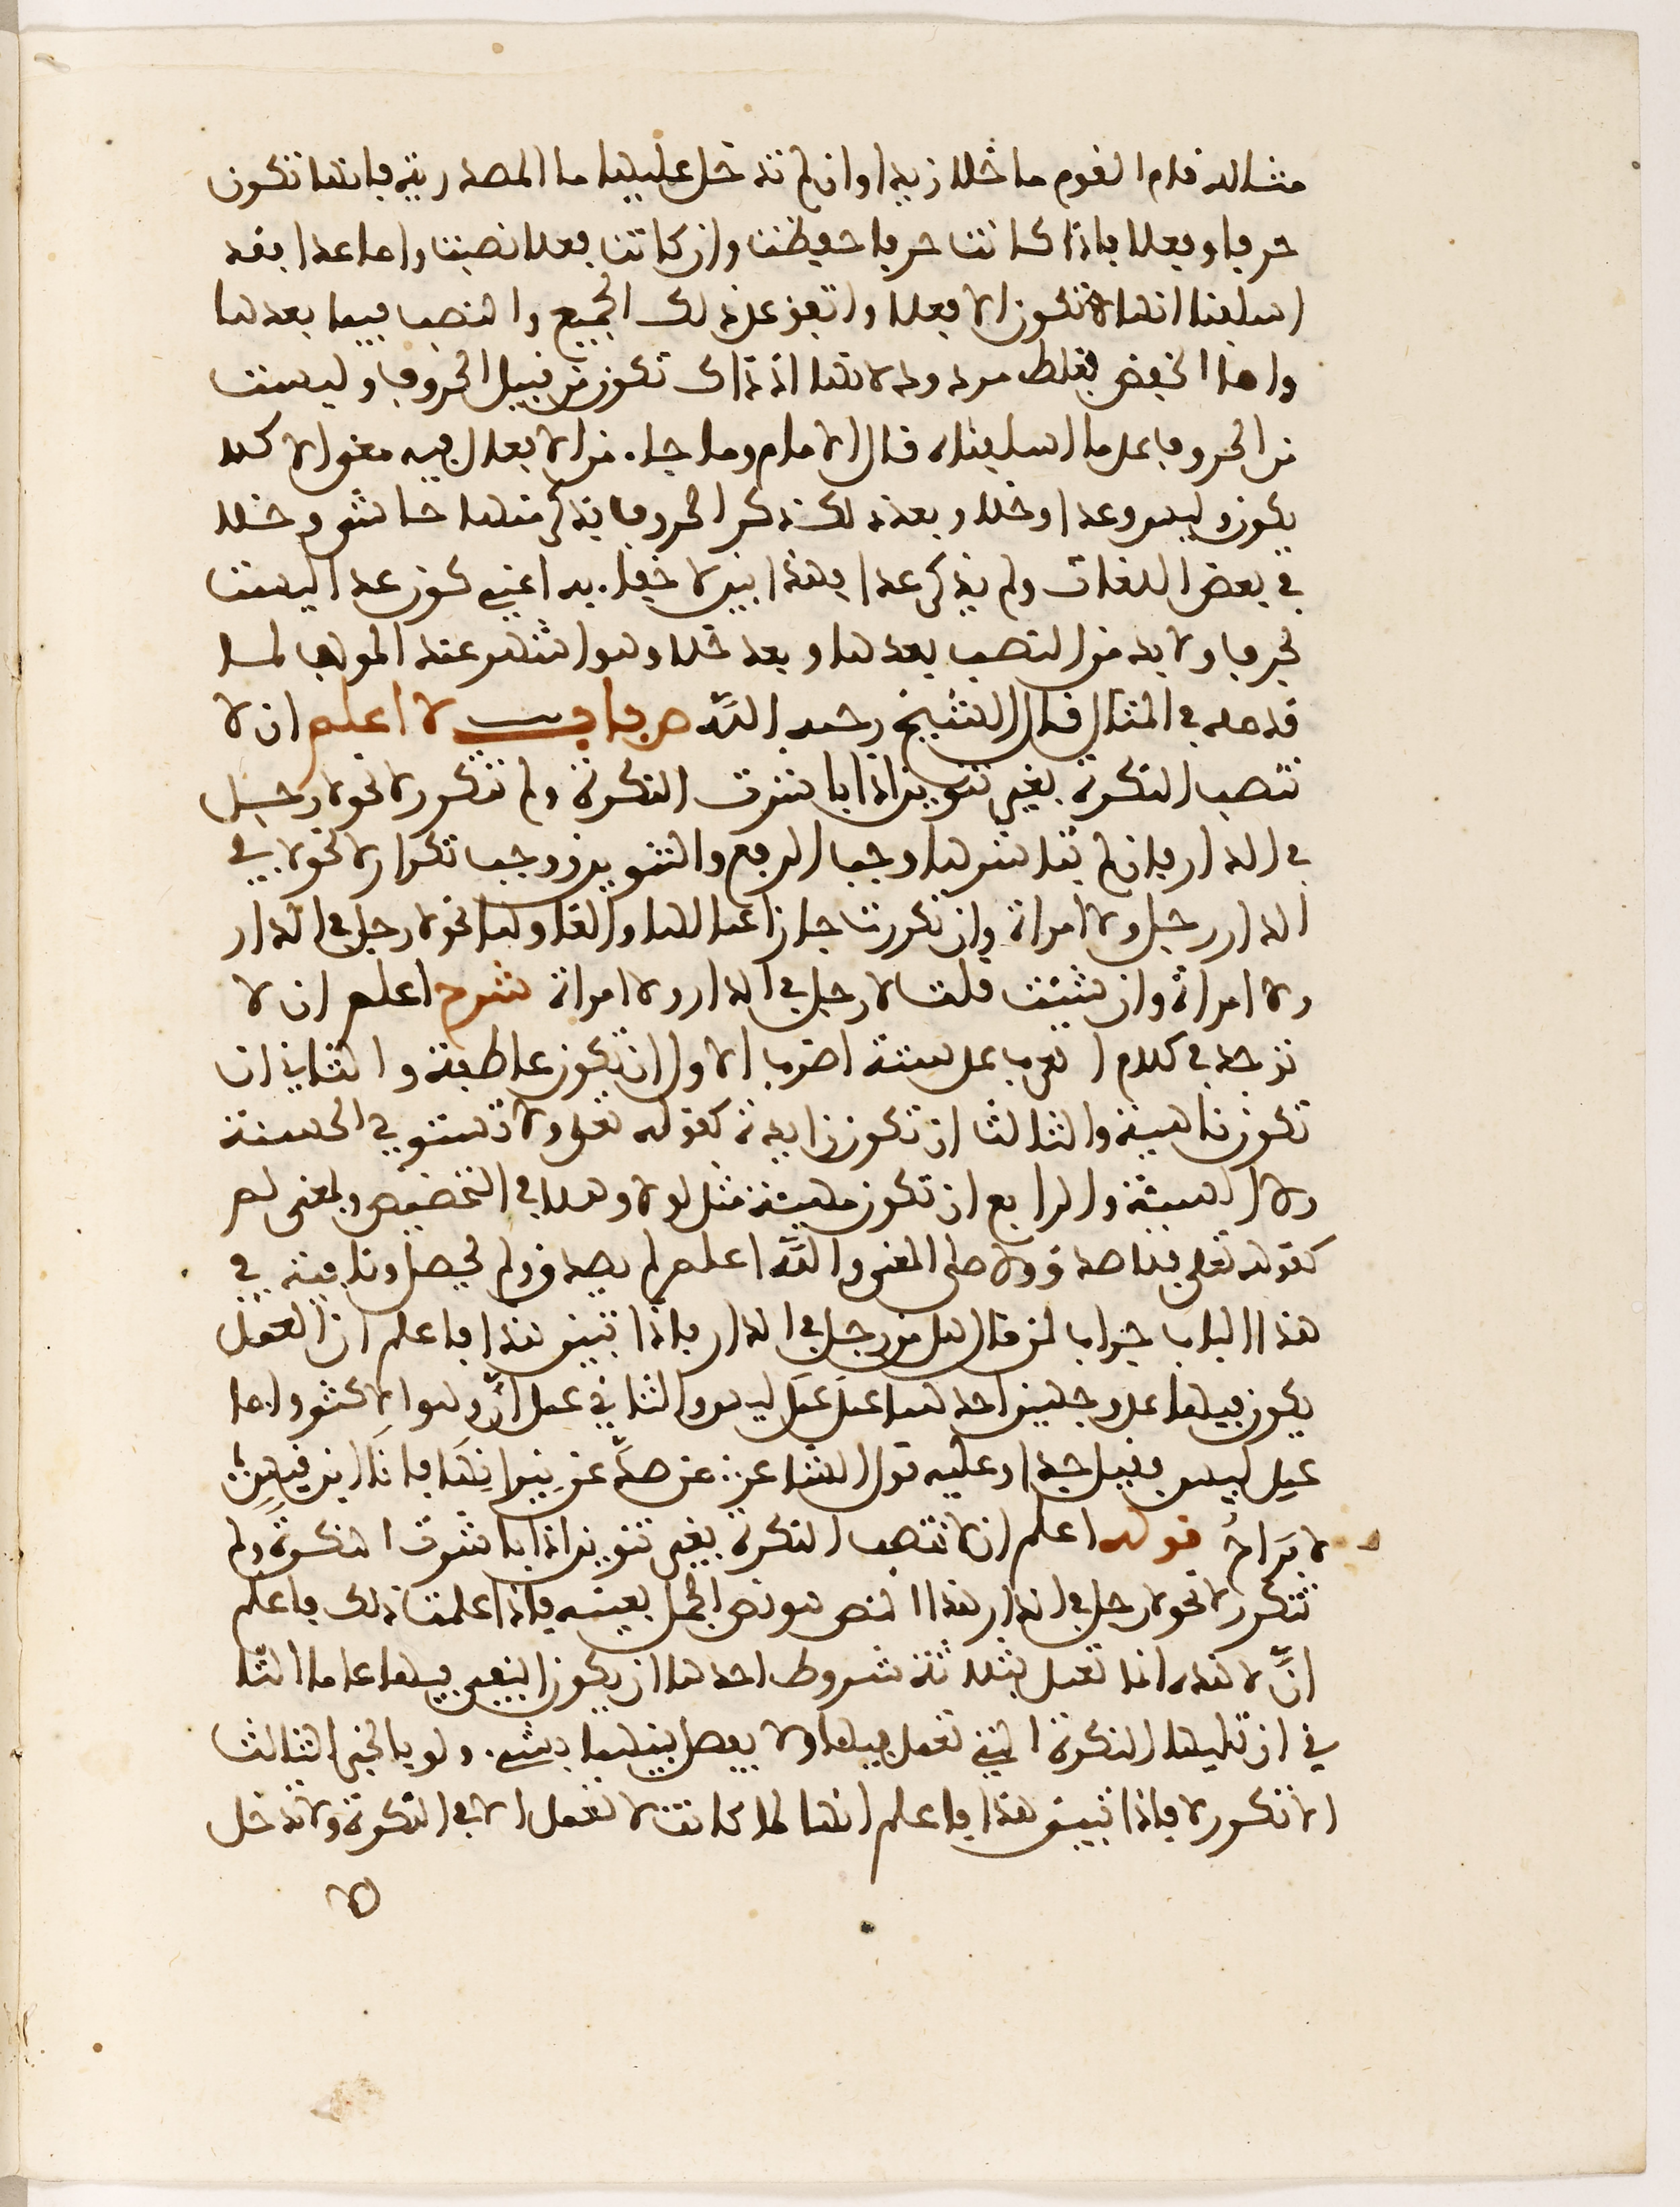 مثاله قام القوم ما خلا زيدا وان لم تدخل عليها ما المصدرية فانها تكون
حرفا وفعلا فاذا كانت حرفا خفظت وان كانت فعلا نصبت واما عدا فقد
اسلفنا انها لا تكون الا فعلا واتفق على ذلك الجميع والنصب فيما بعدها
واما الخفض فغلط مردود لانها اذ ذاك تكون من قبيل الحروف وليست
من الحروف على ما اسلفناه قال الامام وما جاء من الافعال فيه معنى الا كلا
يكون وليس وعدا وخلا وبعد ذلك ذكر الحروف فذكر منها حاشى وخلا
في بعض اللغات ولم يذكر عدا فهذا بين لا خفاء به اعني كون عدا ليست
بحرف ولا بد من النصب بعدها وبعد خلا وهو اشهر عند المولف لما
قدمه في المثال قال الشيخ رحمه الله ص باب لا اعلم ان لا
تنصب النكرة بغير تنوين اذا باشرت النكرة ولم تتكرر لا نحو لا رجل
في الدار فان لم تباشرها وجب الرفع والتنوين ووجب تكرار لا نحو لا في
الدار رجل ولا امراة وان تكررت جاز اعمالها والغاوها نحو لا رجل في الدار
ولا امراة وان شئت قلت لا رجل في الدار ولا امراة شرح اعلم ان لا
توجد في كلام العرب على ستة اضرب الاول ان تكون عاطفة والثاني ان
تكون ناهية والثالث ان تكون زايدة كقوله تعلى ولا تستوي الحسنة
ولا السيئة والرابع ان تكون مهيئة مثل لولا وهلا في التخضيض وبمعنى لم
كقوله تعلى فلا صدق ولا صلى المعنى والله اعلم لم يصدق ولم يصل ونافية في
هذا الباب جواب لمن قال هل من رجل في الدار فاذا تبين هذا فاعلم ان العمل
يكون فيها على وجهين احدهما عمل عمل ليس والثاني عمل ان وهو الاكثر واما
عمل ليس فقليل جدا وعليه قول الشاعر: من صد عن نيرانها فانا ابن قيس؛
لا براح قوله اعلم ان لا تنصب النكرة بغير تنوين اذا باشرت النكرة ولم
تتكرر لا نحو لا رجل في الدار هذا النص هو نص الجمل بعينه فاذا علمت ذلك فاعلم
ان لا هذه انما تعمل بثلاثة شروط احدها ان يكون النفي فيها عاما الثا
ني ان تليها النكرة التي تعمل فيها ولا يفصل بينهما بشيء ولو بالخبر الثالث
الا تكرر لا فاذا تبين هذا فاعلم انها لما كانت لا تعمل الا في النكرة ولا تدخل
الا